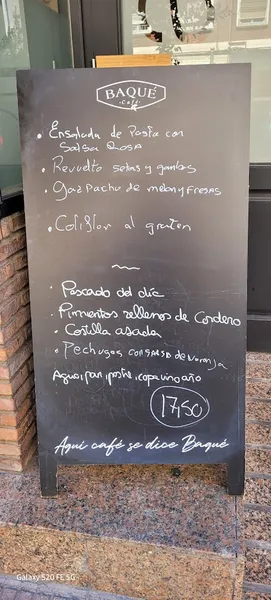 BAQUÉ
Café
• Ensalada de Pasta con
Salsa Rosa
• Revuelto setas y gambas
• Gazpacho de melon y Fresas
• Coliflor al graten
~
• Pescado del dia
• Pimientos rellenos de Cordero
• Costilla asada
• Pechugas con salsa de naranja
Agua, pan, postre, copa vino año
17,50
Aquí café se dice Baqué
Galaxy S20 FE 5G